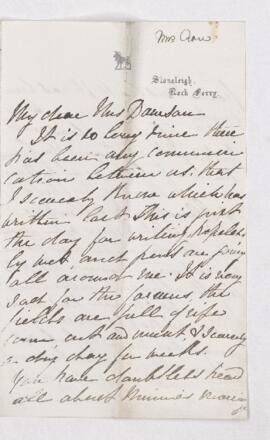 Mrs Crow
Stoneleigh,
Rock Ferry.
My dear Mrs Dawson
It is so long since there
has been any communi
cation between us, that
I scarcely know which has
written last This is just
the day for writing hopelessly
wet and pens are going
all around me. It is very
sad for the farmers, the
fields are full of ripe
corn, cut and uncut & scarcely
a dry day for weeks.
You have doubtless heard
all about Minnie's